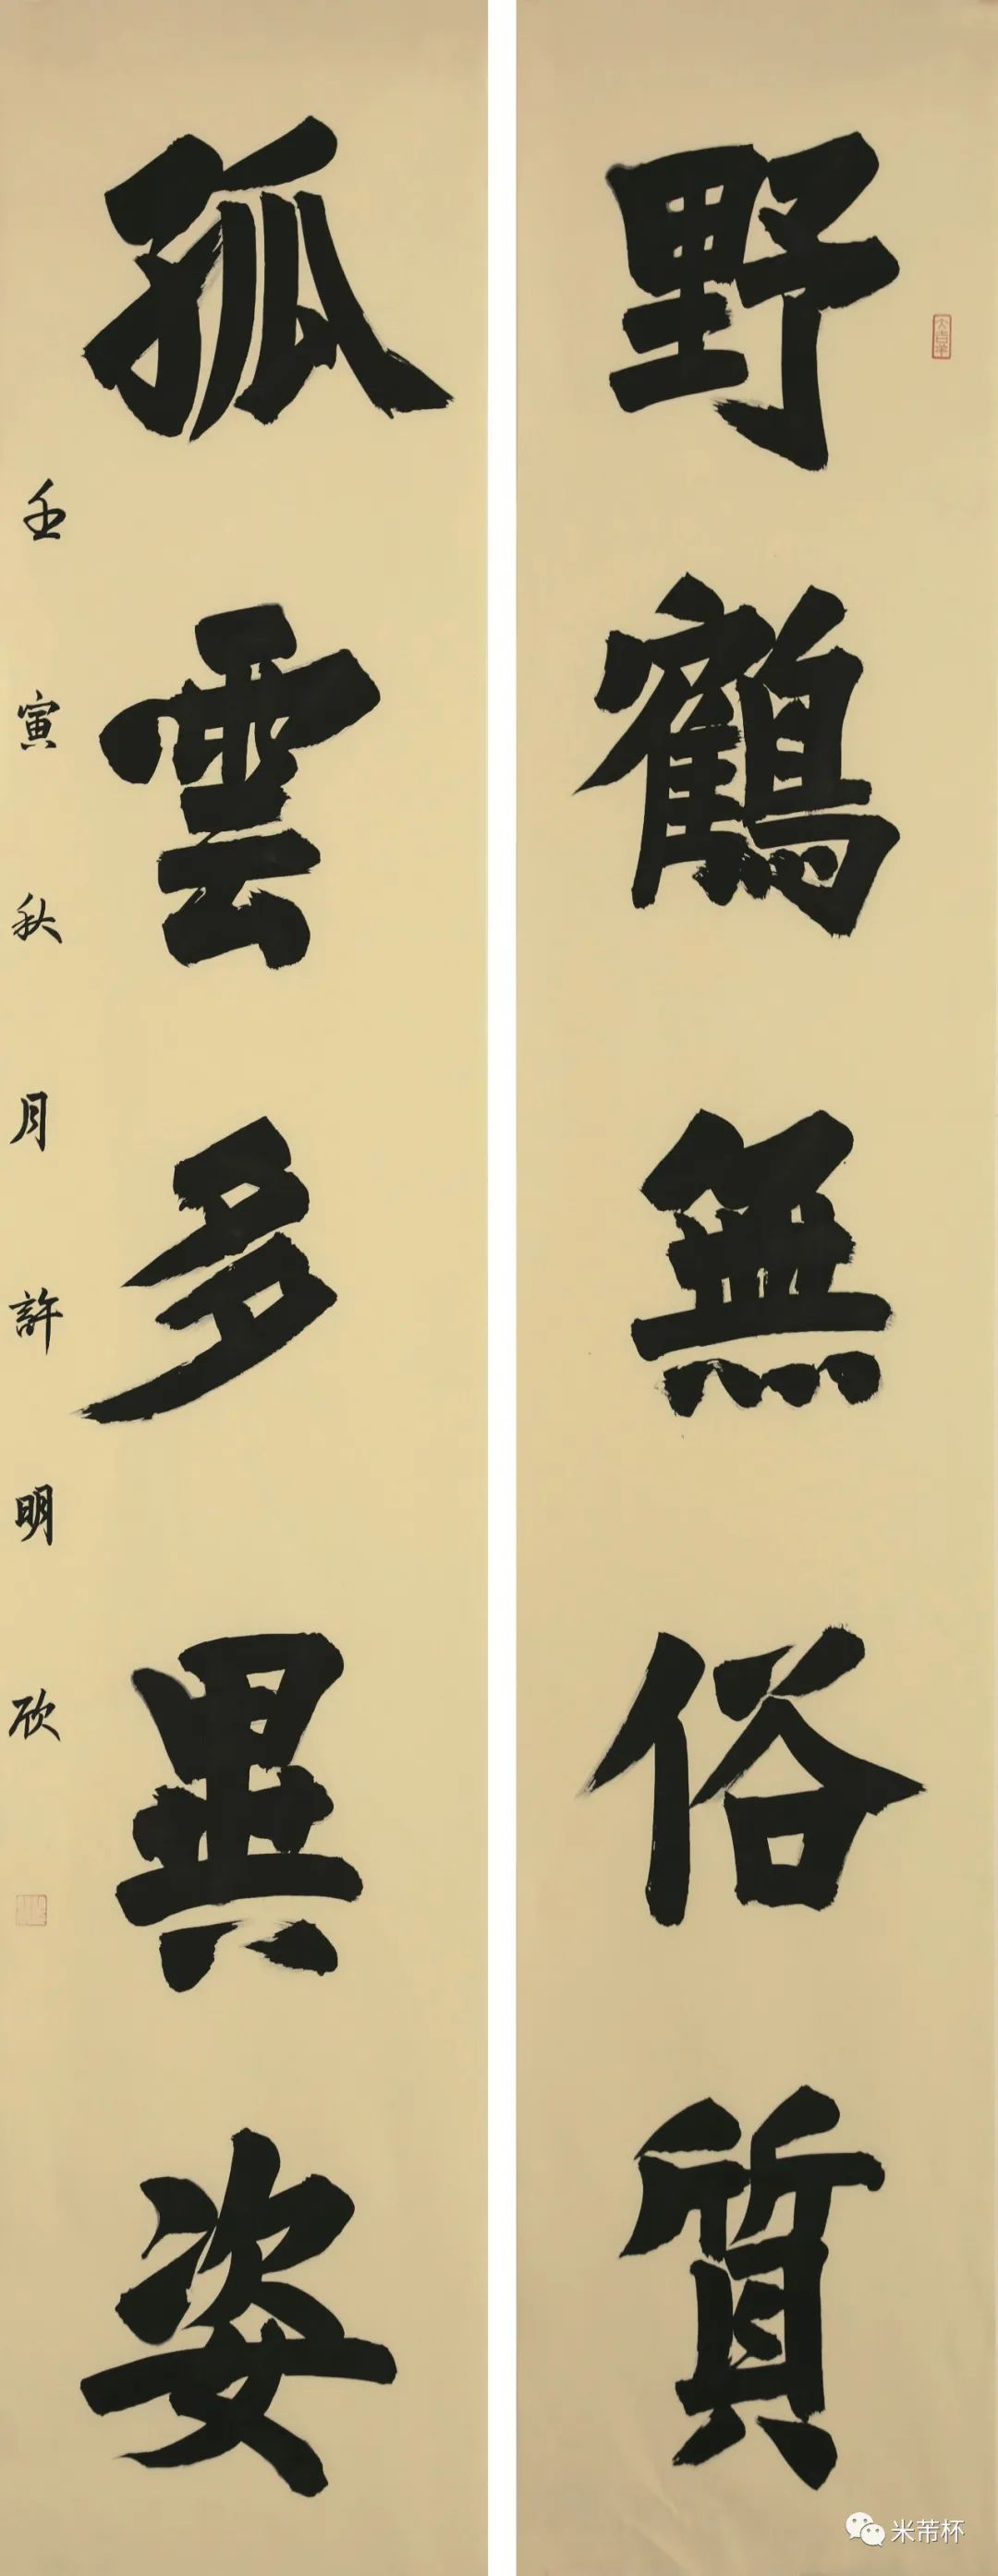 野鶴無俗質
孤雲多異姿
壬寅秋月許明欣
大吉羊
米芾杯